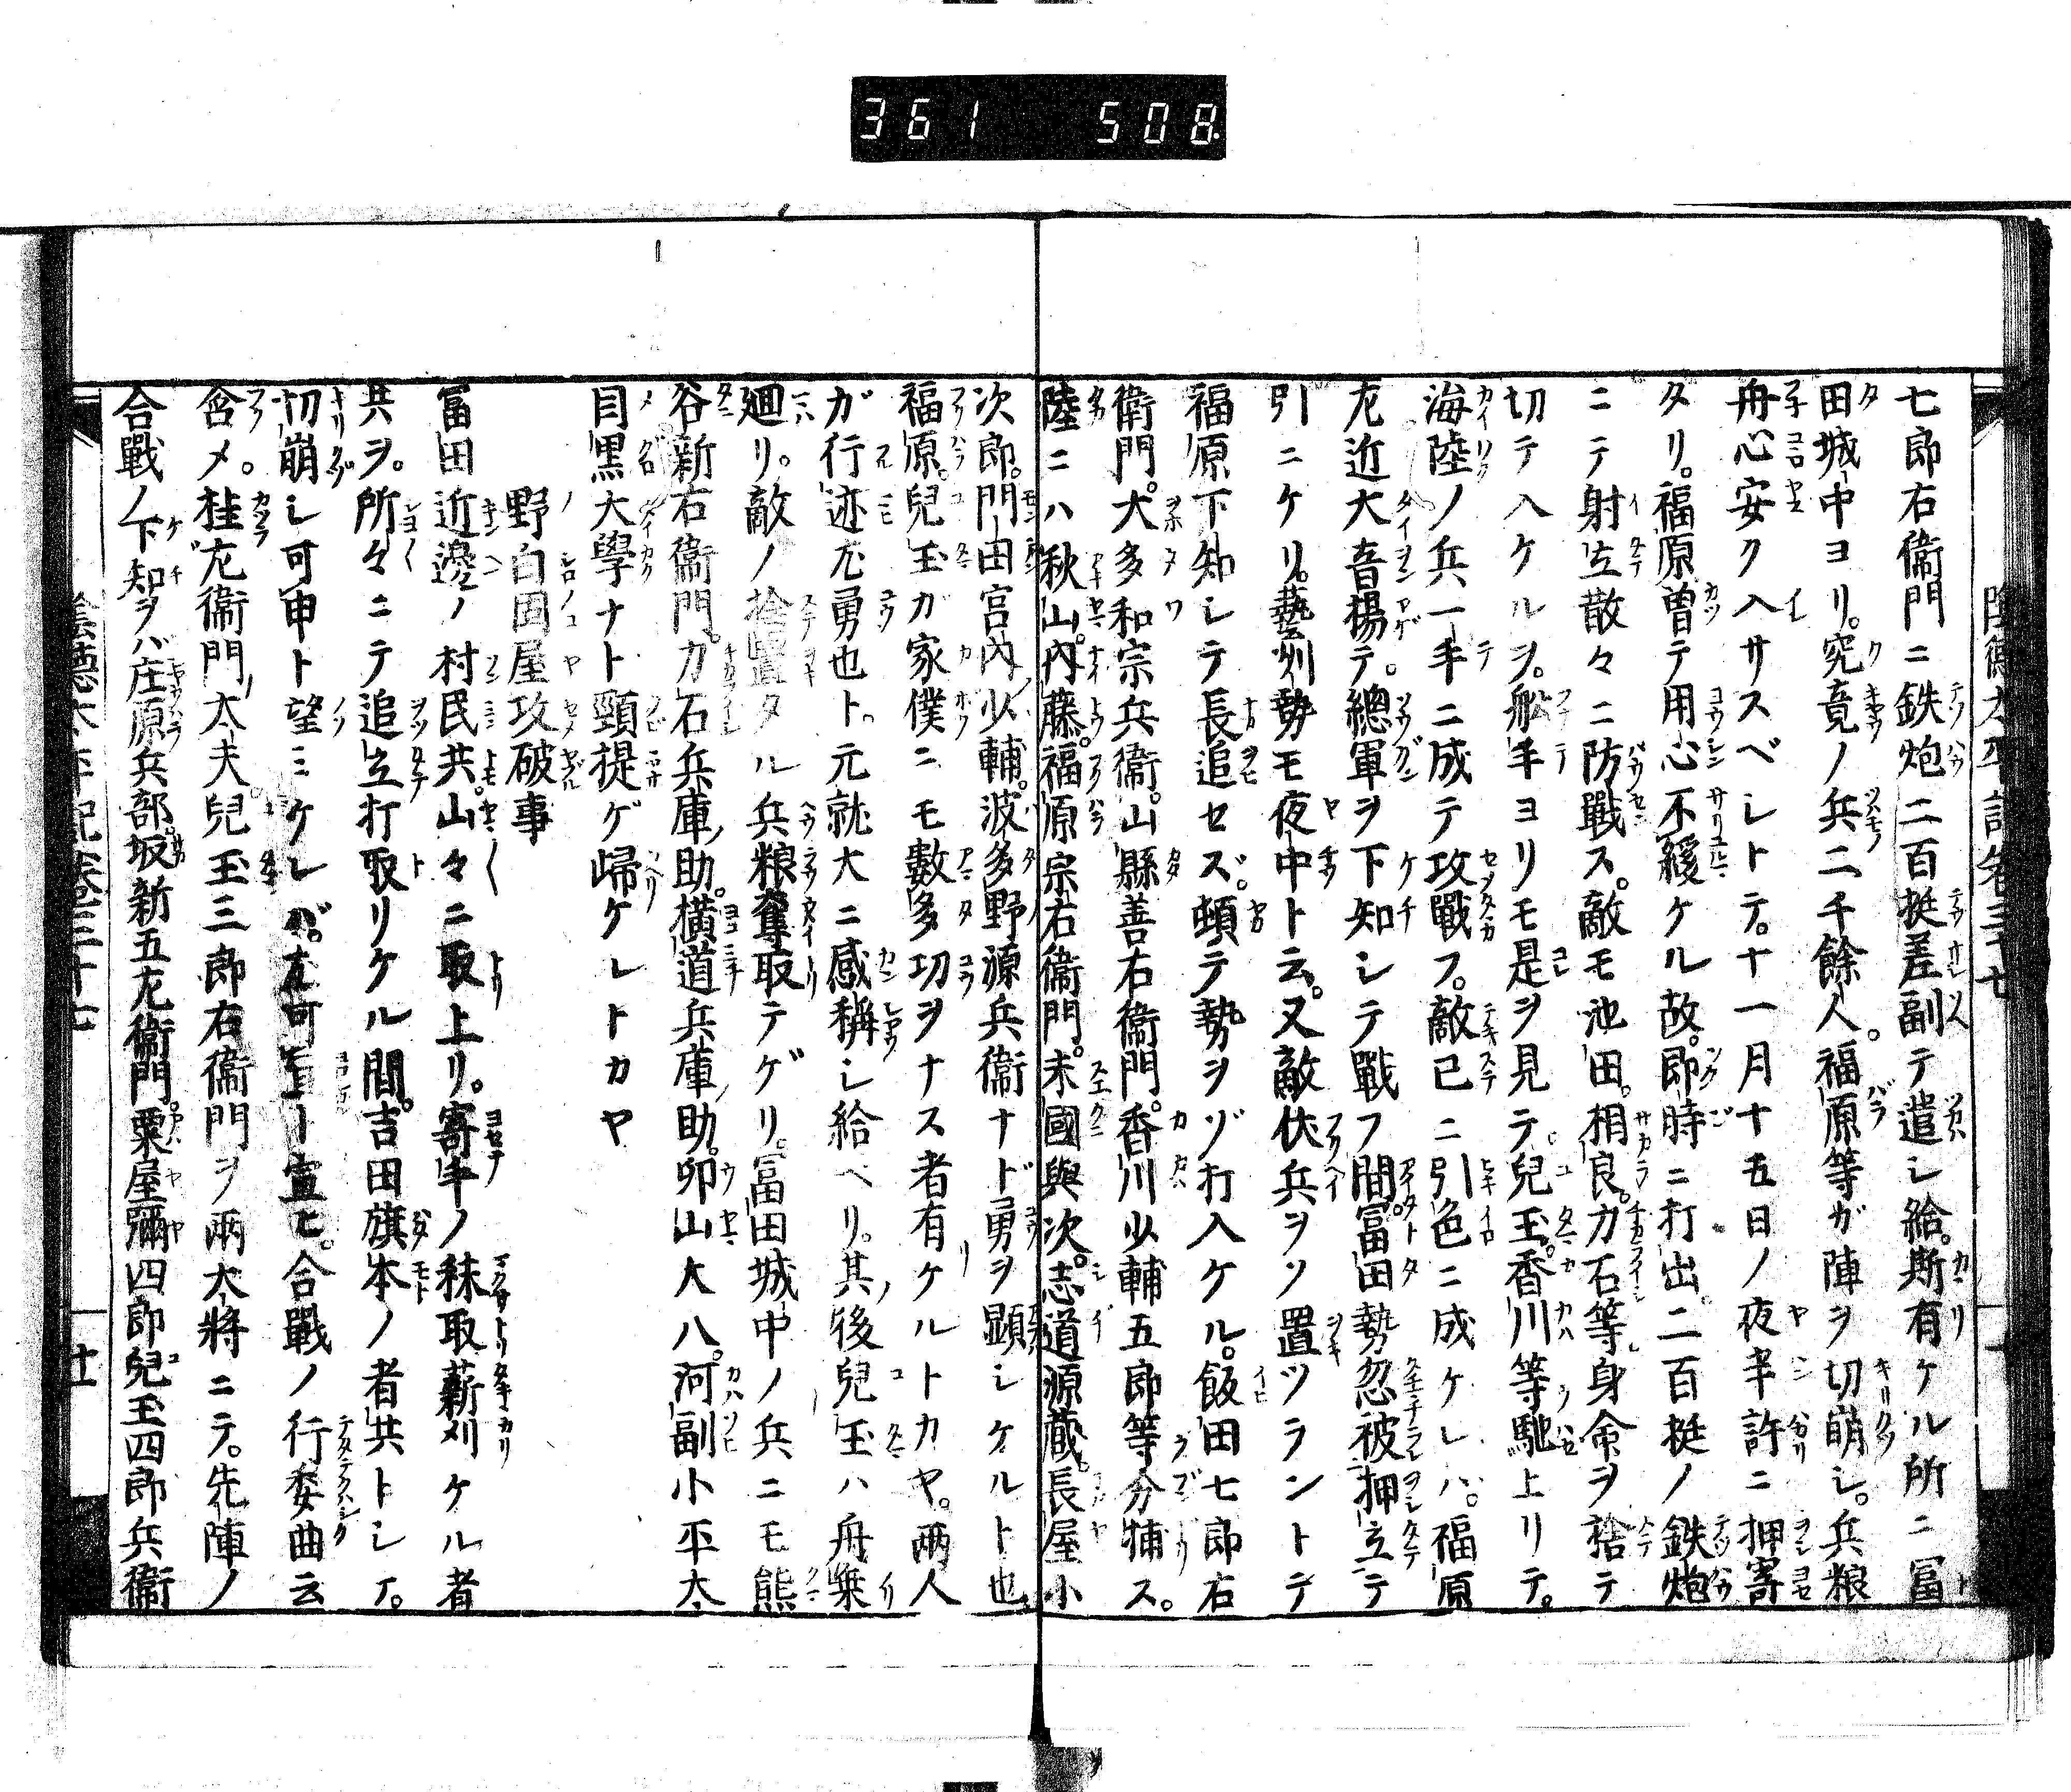 361 508
七郎右衛門ニ鉄炮二百挺差副テ遣シ給。斯有ケル所ニ冨
田城中ヨリ。究竟ノ兵二千餘人。福原等ガ陣ヲ切崩シ。兵粮
舟心安ク入サスベシトテ。十一月十五日ノ夜半許ニ押寄
タリ。福原曽テ用心不緩ケル故。即時ニ打出。二百挺ノ鉄炮
ニテ射立散々ニ防戰ス。敵モ池田。相良。力石等身命ヲ捨テ
切テ入ケルヲ。舩手ヨリモ是ヲ見テ。兒玉。香川等馳上リテ。
海陸ノ兵一手ニ成テ攻戰フ。敵已ニ引色ニ成ケレハ。福原
左近大音揚テ。總軍ヲ下知シテ戰フ間。冨田勢忽被押立テ
引ニケリ。藝州勢モ夜中ト云。又敵伏兵ヲソ置ツラントテ
福原下知シテ長追セズ。頓テ勢ヲゾ打入ケル。飯田七郎右
衛門。大多和宗兵衛。山縣善右衛門。香川少輔五郎等分捕ス。
陸ニハ秋山。内藤。福原宗右衛門。末國與次。志道源蔵。長屋小
次郎。門田宮内少輔。波多野源兵衛ナド勇ヲ顕シケルト也。
福原。兒玉ガ家僕ニモ數多切ヲナス者有ケルトカヤ。兩人
ガ行迹尤勇也ト。元就大ニ感稱シ給ベリ。其後兒玉ハ舟乗
廻リ。敵ノ捨置タル兵粮奪取テゲリ。冨田城中ノ兵ニモ熊
谷新右衛門。力石兵庫助。横道兵庫助。卯山大八。河副小平太
目黒大學ナト頸提ゲ歸ケレトカヤ
野白固屋攻破事
冨田近邊ノ村民共。山々ニ取上リ。寄手ノ秣取薪刈ケル者
共ヲ。所々ニテ追立打取リケル間。吉田旗本ノ者共トシテ。
切崩シ可申ト望ミケレバ。尤可宜ト宣ヒ。合戰ノ行委曲云
含メ。桂左衛門大夫。兒玉三郎右衛門ヲ兩大將ニテ。先陣ノ
合戰ノ下知ヲバ庄原兵部。坂新五左衛門。粟屋彌四郎兒玉四郎兵衛
陰徳太平記巻三十七